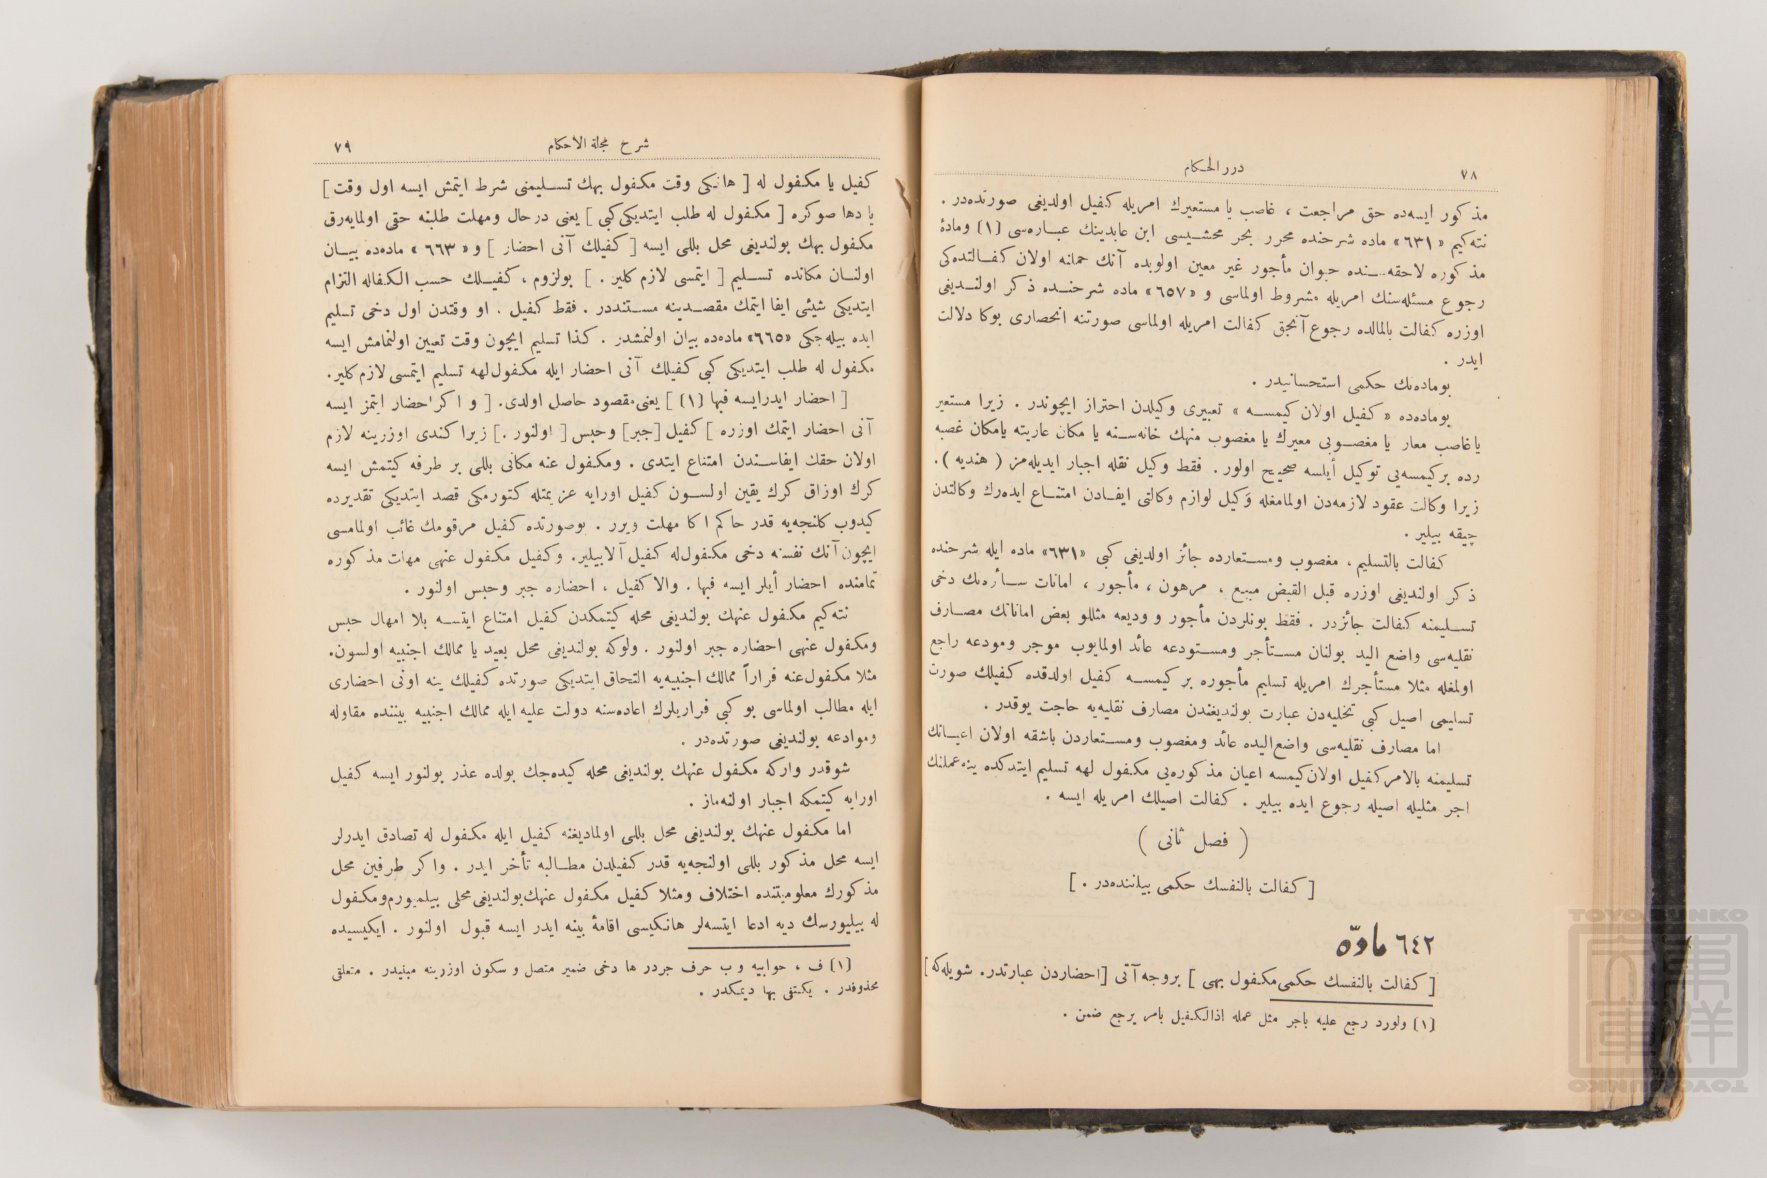 ٧٨
درر الحكام
مذكور ايسه‌ده حق مراجعت ، غاصب يا مستعيرك امريله كفيل اولديغى صورتده‌در .
نته‌كيم «٦٣١» ماده شرحنده محرر بحر محشيسى ابن عابدينك عباره‌سى (١) ومادۀ
مذكوره لاحقه‌سنده حيوان مأجور غير معين اولوبده آنك حمانه اولان كفالتده‌كى
رجوع مسئله‌سنك امريله مشروط اولماسى و «٦٥٧» ماده شرحنده ذكر اولنديغى
اوزره كفالت بالمالده رجوع آنجق كفالت امريله اولماسى صورتنه انحصارى بوكا دلالت
ايدر .
بوماده‌نك حكمى استحسانيدر .
بوماده‌ده « كفيل اولان كيمسه » تعبيرى وكيلدن احتراز ايچوندر . زيرا مستعير
ياغاصب معار يا مغصوبى معيرك يا مغصوب منهك خانه‌سنه يا مكان عاريته يامكان غصبه
رده بركيمسه‌يى توكيل أيلسه صحيح اولور . فقط وكيل نقله اجبار ايديله‌مز ( هنديه ) .
زيرا وكالت عقود لازمه‌دن اولمامغله وكيل لوازم وكالتى ايفادن امتناع ايده‌رك وكالتدن
چيقه بيلير .
كفالت بالتسليم ، مغصوب ومستعارده جائز اولديغى كبى «٦٣١» ماده ايله شرحنده
ذكر اولنديغى اوزره قبل القبض مبيع ، مرهون ، مأجور ، امانات سائره‌نك دخى
تسليمنه كفالت جائزدر . فقط بونلردن مأجور و وديعه مثللو بعض اماناتك مصارف
نقليه‌سى واضع اليد بولنان مستأجر ومستودعه عائد اولمايوب موجر ومودعه راجع
اولمغله مثلا مستأجرك امريله تسليم مأجوره بر كيمسه كفيل اولدقده كفيلك صورت
تسليمى اصيل كبى تخليه‌دن عبارت بولنديغندن مصارف نقليه‌يه حاجت يوقدر .
اما مصارف نقليه‌سى واضع‌اليده عائد ومغصوب ومستعاردن باشقه اولان اعيانك
تسليمنه بالامر كفيل اولان كيمسه اعيان مذكوره‌يى مكفول لهه تسليم ايتدكده ينه عملنك
اجر مثليله اصيله رجوع ايده بيلير . كفالت اصيلك امريله ايسه .
( فصل ثانى )
[ كفالت بالنفسك حكمى بياننده‌در . ]
٦٤٢ مادّه
[ كفالت بالنفسك حكمى مكفول بهى ] بروجه آتى [احضاردن عبارتدر. شويله‌كه]
(١) ولورد رجع عليه باجر مثل عمله اذالكفيل بامر يرجع ضمن .
شرح مجلة الاحكام
٧٩
كفيل يا مكفول له [ هانكى وقت مكفول بهك تسليمنى شرط ايتمش ايسه اول وقت ]
يا دها صوكره [ مكفول له طلب ايتديكى كبى ] يعنى درحال ومهلت طلبنه حقى اولمايه‌رق
مكفول بهك بولنديغى محل بللى ايسه [ كفيلك آنى احضار ] و « ٦٦٣ » ماده‌ده بيان
اولنان مكانده تسليم [ ايتمسى لازم كلير . ] بولزوم ، كفيلك حسب الكفاله التزام
ايتديكى شيئى ايفا ايتمك مقصدينه مستنددر . فقط كفيل . او وقتدن اول دخى تسليم
ايده بيله‌جكى «٦٦٥» ماده‌ده بيان اولنمشدر . كذا تسليم ايچون وقت تعيين اولنمامش ايسه
مكفول له طلب ايتديكى كبى كفيلك آنى احضار ايله مكفول‌لهه تسليم ايتمسى لازم كلير.
[ احضار ايدرايسه فبها (١) ] يعنى مقصود حاصل اولدى. [ و اكر احضار ايتمز ايسه
آنى احضار ايتمك اوزره ] كفيل [جبر] وحبس [ اولنور . ] زيرا كندى اوزرينه لازم
اولان حقك ايفاسندن امتناع ايتدى . ومكفول عنه مكانى بللى بر طرفه كيتمش ايسه
كرك اوزاق كرك يقين اولسون كفيل اورايه عزيمتله كتورمكى قصد ايتديكى تقديرده
كيدوب كلنجه‌يه قدر حاكم اكا مهلت ويرر . بوصورتده كفيل مرقومك غائب اولمامسى
ايچون آنك نفسنه دخى مكفول‌له كفيل آلابيلير. وكفيل مكفول عنهى مهلت مذكوره
تمامنده احضار أيلر ايسه فبها . والا كفيل ، احضاره جبر وحبس اولنور .
نته‌كيم مكفول عنهك بولنديغى محله كيتمكدن كفيل امتناع ايتسه بلا امهال حبس
ومكفول عنهى احضاره جبر اولنور . ولوكه بولنديغى محل بعيد يا ممالك اجنبيه اولسون.
مثلا مكفول‌عنه فراراً ممالك اجنبيه‌يه التحاق ايتديكى صورتده كفيلك ينه اونى احضارى
ايله مطالب اولماسى بو كبى فراريلرك اعاده‌سنه دولت عليه ايله ممالك اجنبيه بيننده مقاوله
وموادعه بولنديغى صورتده‌در .
شوقدر واركه مكفول عنهك بولنديغى محله كيده‌جك يولده عذر بولنور ايسه كفيل
اورايه كيتمكه اجبار اولنه‌ماز .
اما مكفول عنهك بولنديغى محل بللى اولماديغنه كفيل ايله مكفول له تصادق ايدرلر
ايسه محل مذكور بللى اولنجه‌يه قدر كفيلدن مطالبه تأخر ايدر . واكر طرفين محل
مذكورك معلوميتنده اختلاف ومثلا كفيل مكفول عنهك بولنديغى محلى بيلميورم ومكفول
له بيليورسك ديه ادعا ايتسه‌لر هانكيسى اقامۀ بينه ايدر ايسه قبول اولنور . ايكيسيده
(١) ف ، جوابيه و ب حرف جردر ها دخى ضمير متصل و سكون اوزرينه مبنيدر . متعلقى
محذوفدر . يكتفى بها ديمكدر .
TOYO BUNKO